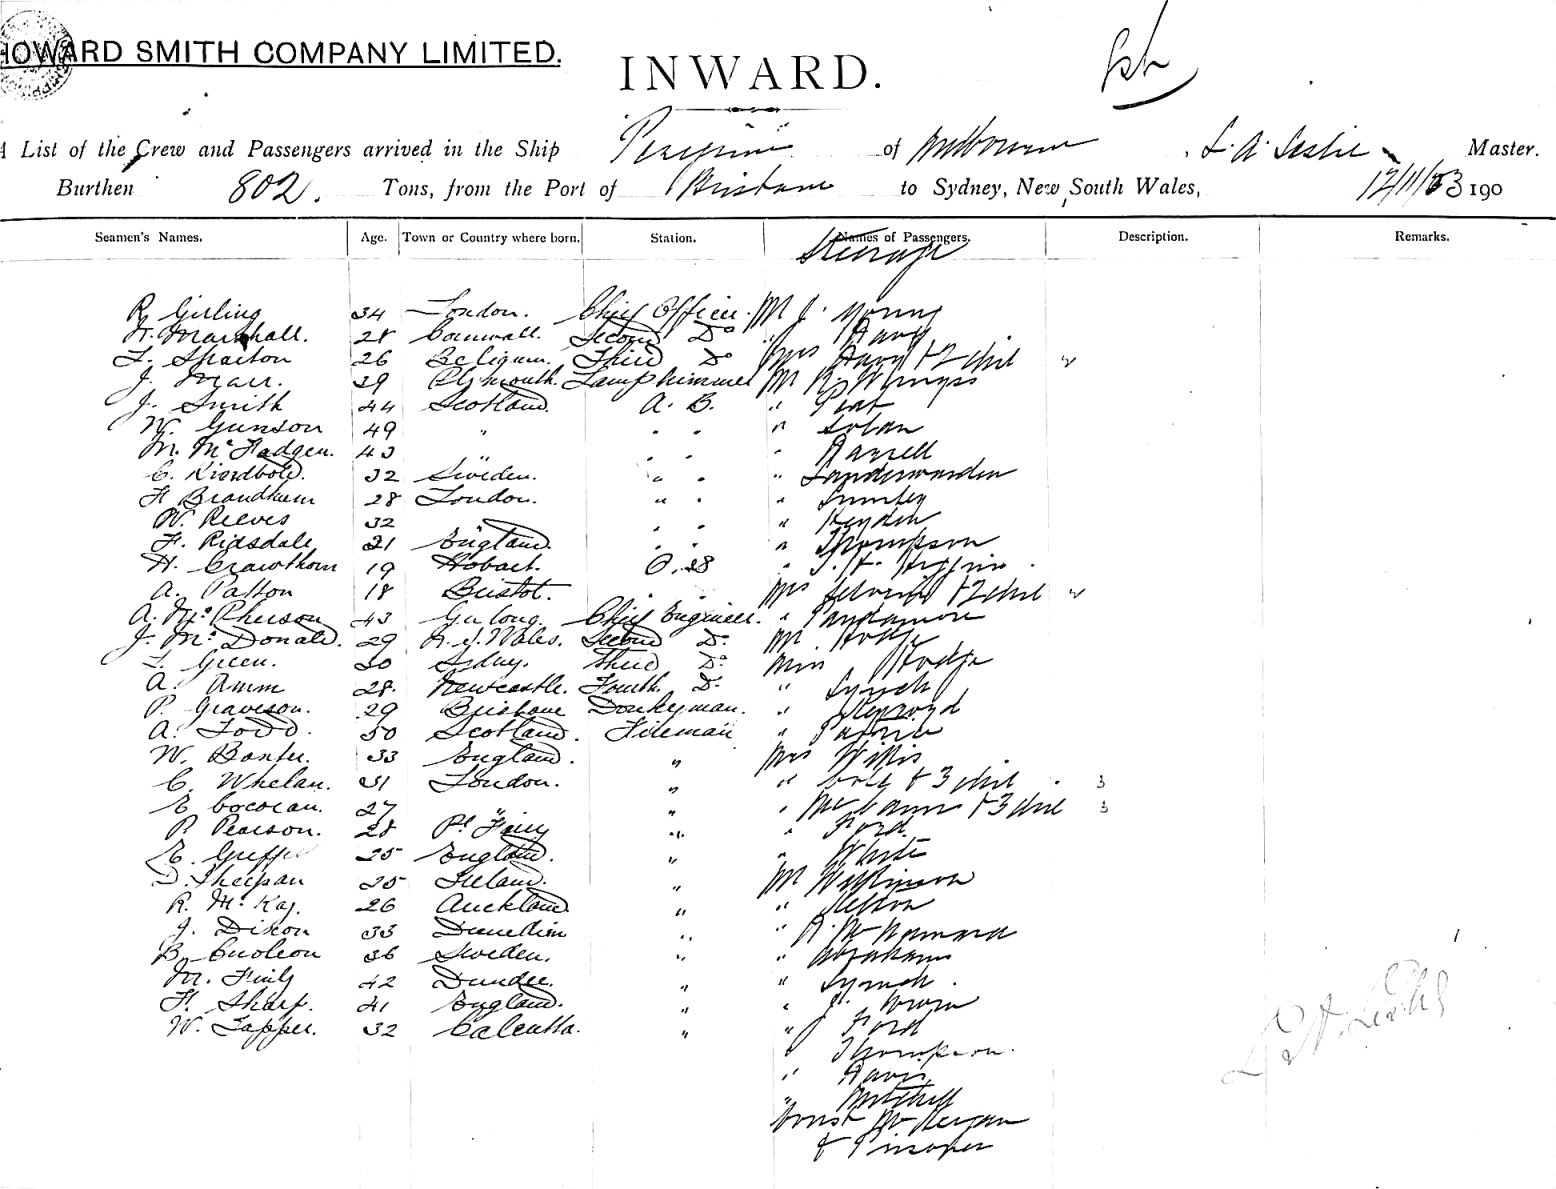 HOWARD SMITH COMPANY LIMITED.
INWARD.
A List of the Crew and Passengers arrived in the Ship "Peregrine" of Melbourne, L. A. Leslie Master.
Burthen 802. Tons, from the Port of Brisbane to Sydney, New South Wales, 12/11/03 190
Seamen's Names. Age. Town or Country where born. Station. Names of Passengers. Description. Remarks.
Steerage
R. Girling 34 London. Chief Officer. Mr J. Young
H. Marshall. 28 Cornwall. Second Do " Davy
26 Beligum. Third Do Mrs Davy & 2 chil
J. Marr. 29 Plymouth. Lamptrimmer Mr
J. Smith 44 Scotland. A. B. "
W. Gunson 49 " " " "
M. McFadgen. 43 " " " "
C. 32 Sweden. " " "
F. 28 London. " " "
W. Reeves 32 " " " "
F. Ridsdale 21 England. " " " Thompson
H. Crawthorn 19 Hobart. O.S
A. Patton 18 Bristol. " " Mrs & 2 chil
A. McPherson 43 Geelong. Chief Engineer. "
J. McDonald. 29 N. S. Wales. Second Do Mr Hodge
Green. 30 Sidney. Third Do Miss Hodge
A. Amm 28. Newcastle. Fourth Do " Lynch
P. Graveson. 29 Brisbane Donkeyman. "
A. Todd. 50 Scotland. Fireman "
W. Baxter. 33 England. " Mrs Willis
C. Whelan. 31 London. " " & 3 chil 3
E. Cocoran. 27 " " " McCann & 3 chil 3
P. Pearson. 28 Pt Fairy " " Ford
E. 25 England. " " White
D. Sheehan 25 Ireland. " Mr Wilkinson
R. McKay. 26 Auckland. " "
J. Dixon 33 Dunedin " " McNamara
B. 36 Sweden. " Abrahams
M. Finly 42 Dundee. " " Lynch.
H. Sharp. 41 England. " " J. Brown
W. Tapper. 32 Calcutta. " " Ford
" Thompson.
" Davis
" Mitchell
Const
& Prisoner
L A Leslie